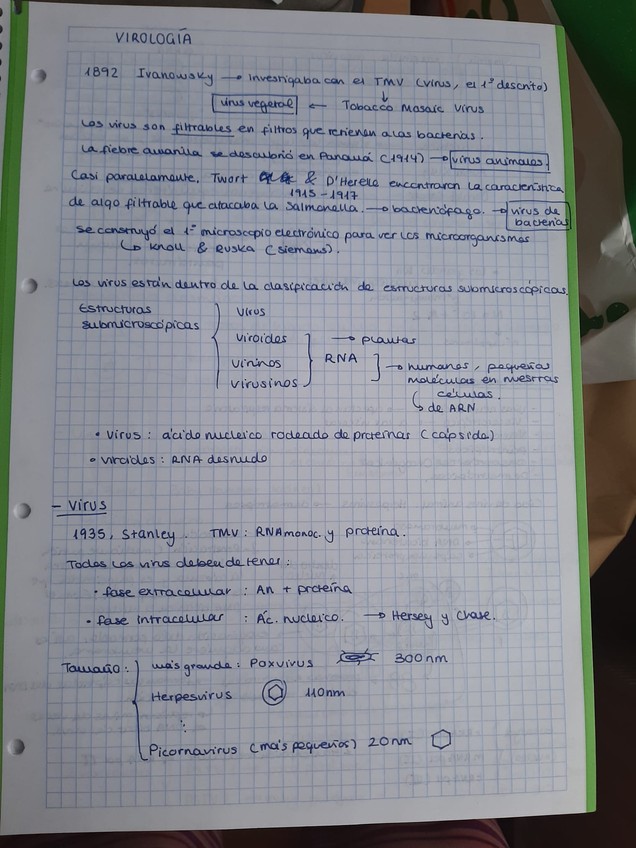 VIROLOGÍA
1892 Ivanowsky → investigaba con el TMV (virus, el 1º descrito)
virus vegetal ← Tobacco Mosaic Virus
Los virus son filtrables en filtros que retienen a las bacterias.
La fiebre amarilla se descubrió en Panamá (1914) → virus animales.
Casi paralelamente, Twort & D'Herelle encontraron la característica
1915-1917
de algo filtrable que atacaba la Salmonella. → bacteriófago. → virus de bacterias
Se construyó el 1º microscopio electrónico para ver los microorganismos
↳ Knoll & Ruska (Siemens).
Los virus están dentro de la clasificación de estructuras submicroscópicas.
Estructuras submicroscópicas
virus
viroides → plantas
virinos RNA → humanos, pequeñas
virusinos moléculas en nuestras
células.
↳ de ARN
• Virus: ácido nucleico rodeado de proteínas (cápsida)
• viroides: RNA desnudo
- Virus
1935, Stanley. TMV: RNAmonoc. y proteína.
Todos los virus deben de tener:
• fase extracelular : An + proteína
• fase intracelular : Ác. nucleico. → Hersey y Chase.
Tamaño: más grande: Poxvirus 300nm
Herpesvirus 110nm
Picornavirus (más pequeños) 20nm